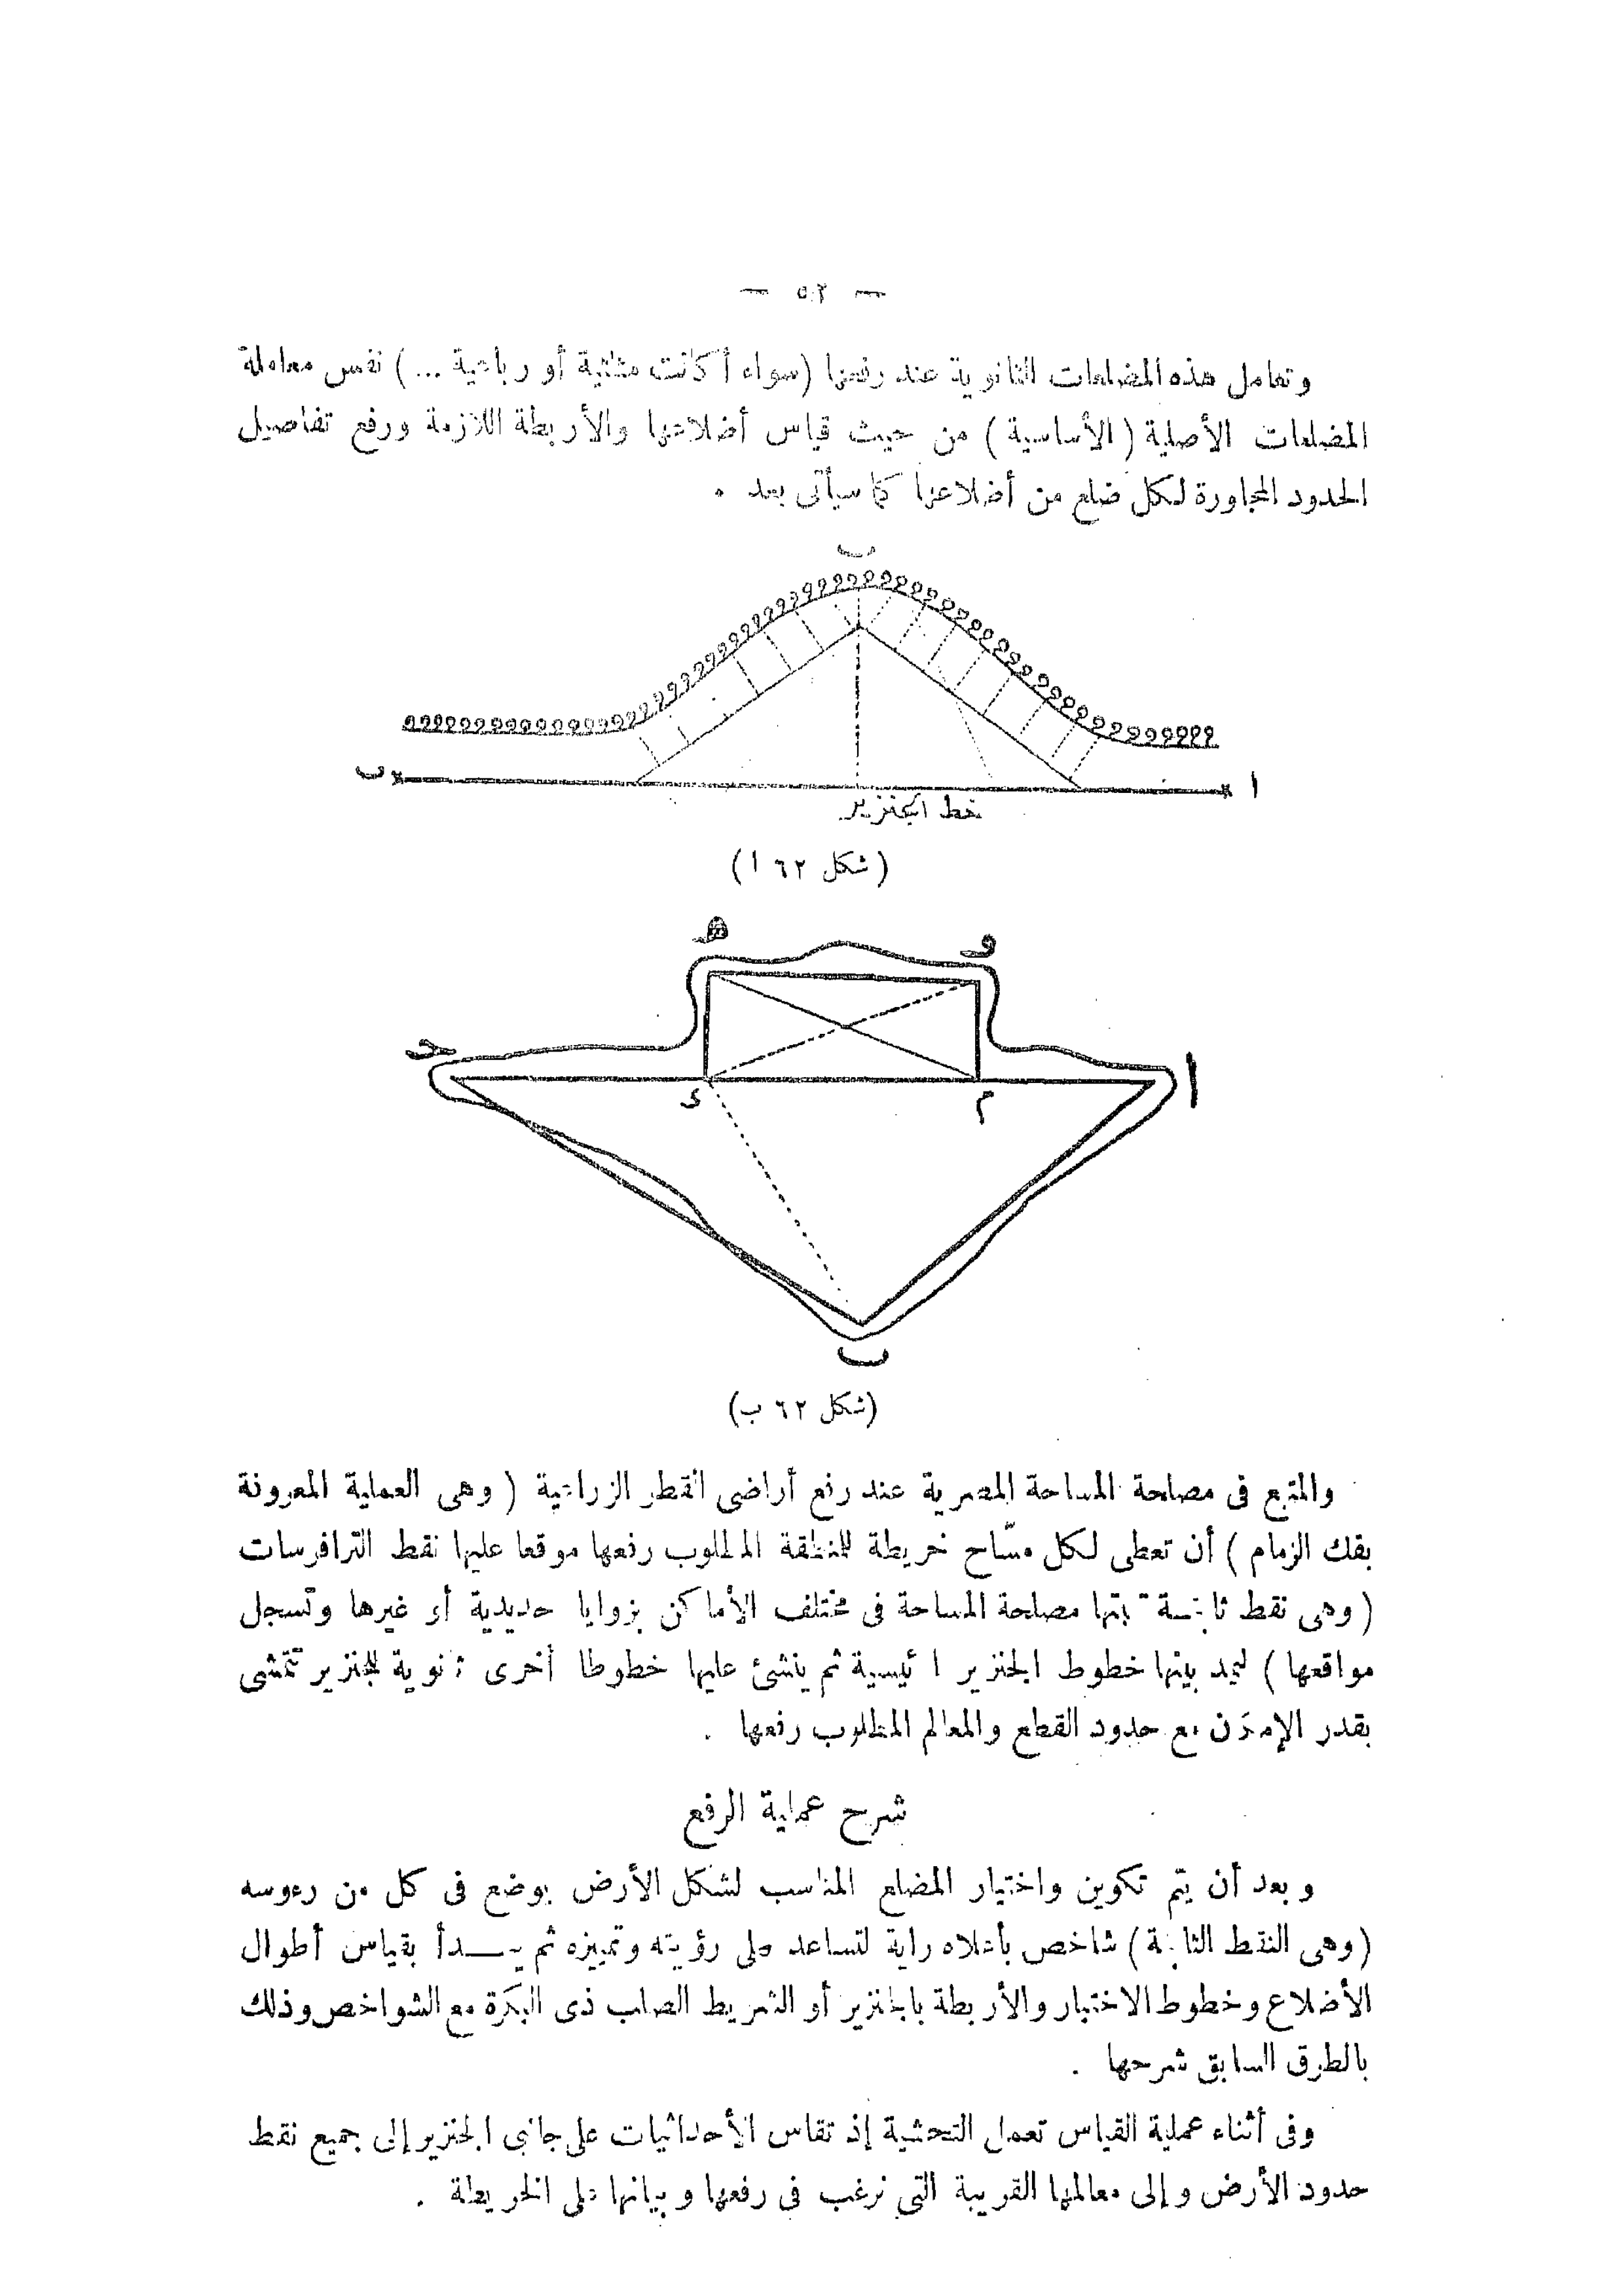 — ٥٢ —
وتعامل هذه المضلعات الثانوية عند رفعها (سواء أكانت مثلثية أو رباعية ...) نفس معاملة
المضلعات الأصلية (الأساسية) من حيث قياس أضلاعها والأربطة اللازمة ورفع تفاصيل
الحدود المجاورة لكل ضلع من أضلاعها كما سيأتى بعد .
ب
ب
ا
خط الجنزير
(شكل ٦٢ ا)
ه
و
ح
ا
د
م
ب
(شكل ٦٢ ب)
والمتبع فى مصلحة المساحة المصرية عند رفع أراضى القطر الزراعية (وهى العملية المعروفة
بفك الزمام) أن تعطى لكل مسّاح خريطة للمنطقة المطلوب رفعها موقعا عليها نقط الترافرسات
(وهى نقط ثابتة ثبتها مصلحة المساحة فى مختلف الأماكن بزوايا حديدية أو غيرها وتسجل
مواقعها) ليمد بينها خطوط الجنزير الرئيسية ثم ينشئ عليها خطوطا أخرى ثانوية للجنزير تتمشى
بقدر الإمكان مع حدود القطع والمعالم المطلوب رفعها .
شرح عملية الرفع
وبعد أن يتم تكوين واختيار المضلع المناسب لشكل الأرض يوضع فى كل من رءوسه
(وهى النقط الثابتة) شاخص بأعلاه راية لتساعد على رؤيته وتمييزه ثم يبدأ بقياس أطوال
الأضلاع وخطوط الاختبار والأربطة بالجنزير أو الشريط الصلب ذى البكرة مع الشواخص وذلك
بالطرق السابق شرحها .
وفى أثناء عملية القياس تعمل التحشية إذ تقاس الأحداثيات على جانبى الجنزير إلى جميع نقط
حدود الأرض وإلى معالمها القريبة التى نرغب فى رفعها وبيانها على الخريطة .